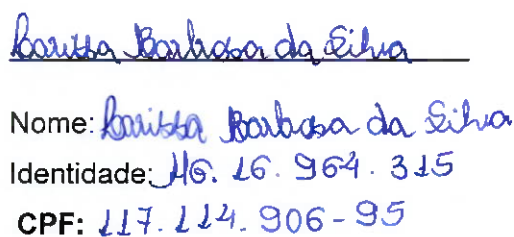 Larissa Barbosa da Silva
Nome: Larissa Barbosa da Silva
Identidade: MG. 16. 964. 315
CPF: 117. 114. 906-95